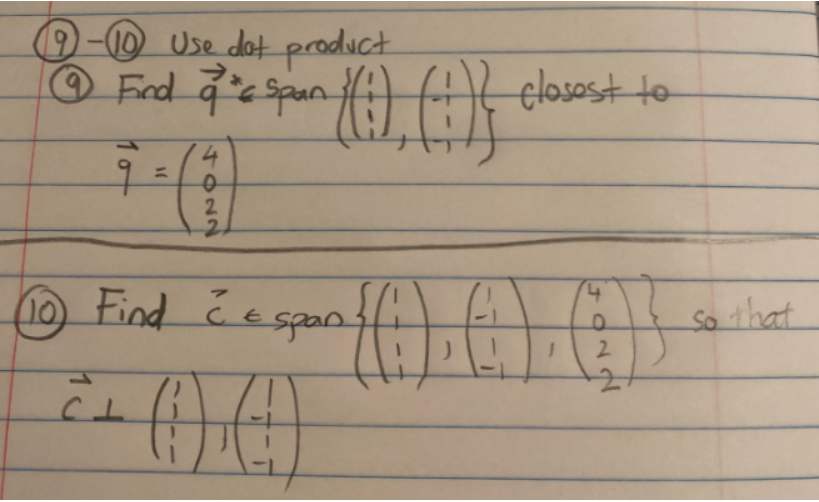 ⑨-⑩ Use dot product
⑨ Find q⃗* ∈ span {(1 1 1 1), (1 -1 1 -1)} closest to
q⃗ = (4 0 2 2)
⑩ Find c⃗ ∈ span {(1 1 1 1), (1 -1 1 -1), (4 0 2 2)} so that
c⃗ ⊥ (1 1 1 1), (1 -1 1 -1)